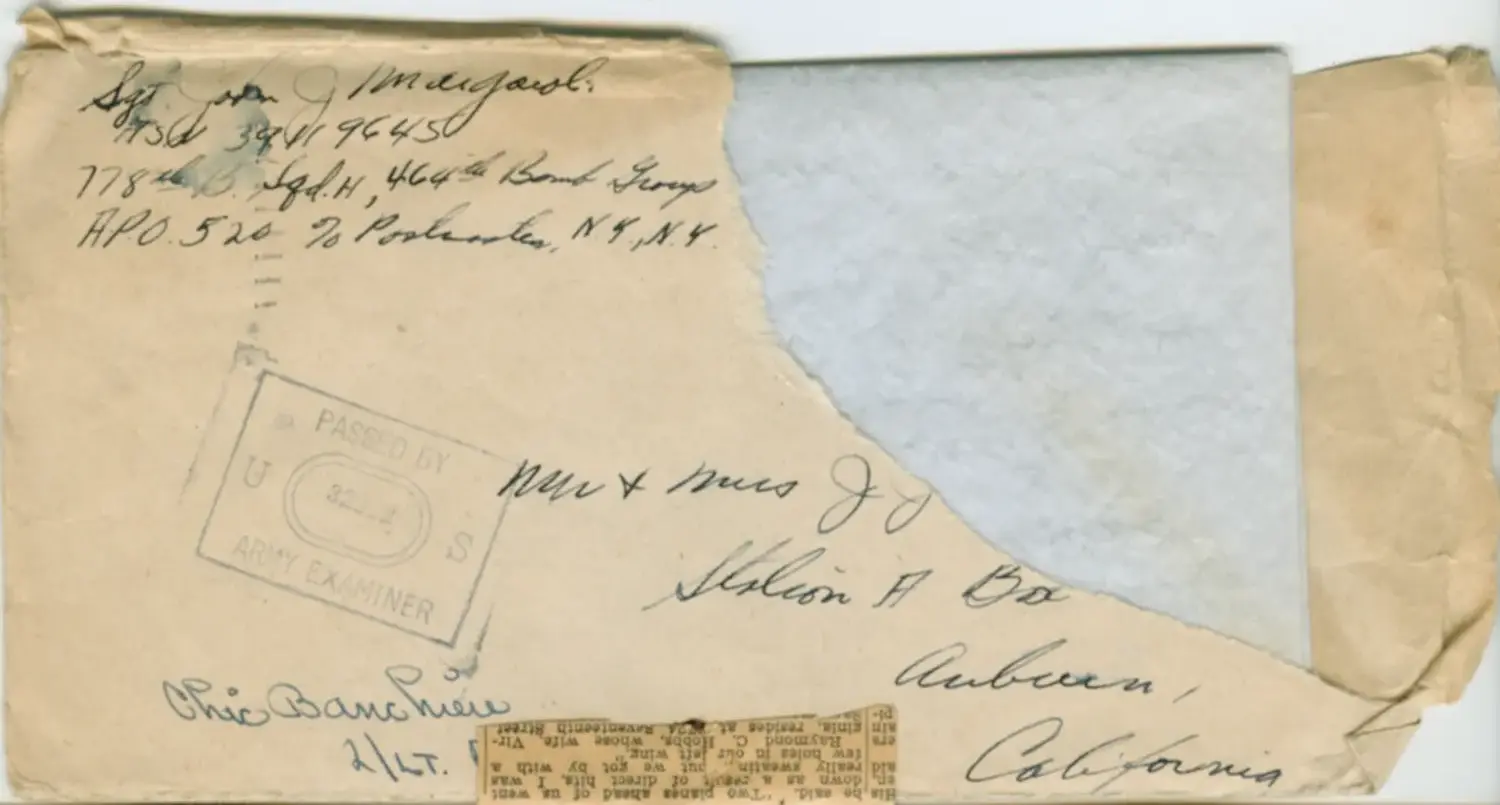 Sgt. John J Margaroli
ASN 39119645
778th B. Sqd. H, 464th Bomb Group
A.P.O. 520 % Postmaster, N.Y., N.Y.
PASSED BY
U S
ARMY EXAMINER
Mr & Mrs J J
Station A Box
Auburn,
California
Chic Banchieie
2/LT.
His, he said. "Two planes ahead of us went
en down as a result of direct hits. I was
aid really sweatin', but we got by with a
few holes in our left wing."
ers Raymond C. Hobbs, whose wife, Vir-
ain ginia, resides at 2724 Seventeenth Street
pi-